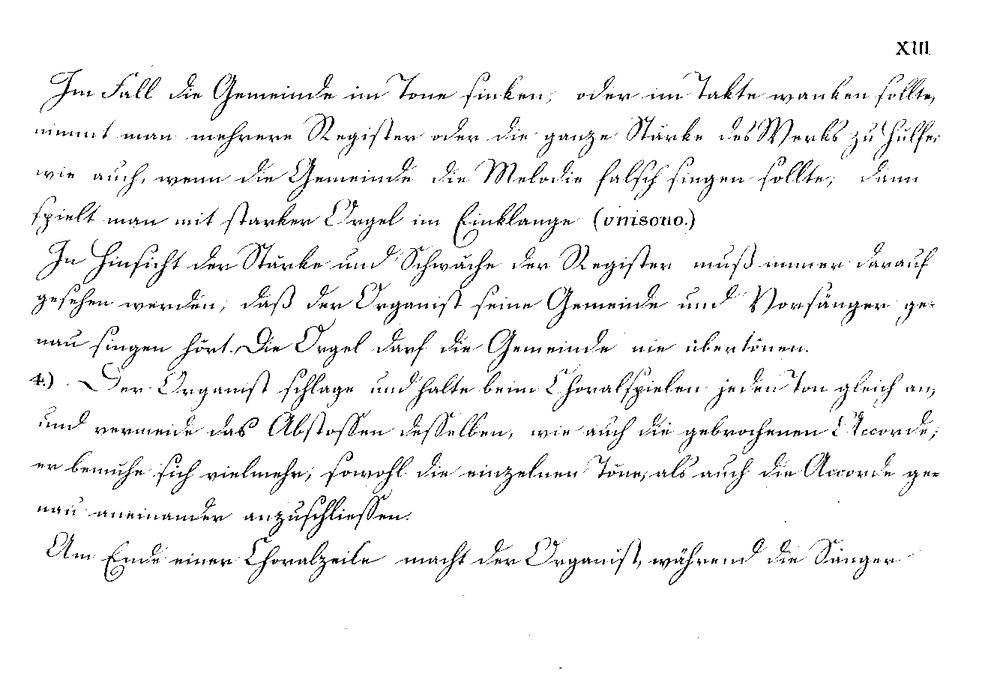 XIII
Im Fall die Gemeinde im Tone sinken, oder im Takte wanken sollte,
nimmt man mehrere Register oder die ganze Stärke des Werks zu Hülfe;
wie auch, wenn die Gemeinde die Melodie falsch singen sollte; dann
spielt man mit starker Orgel im Einklange (unisono.)
In Hinsicht der Stärke und Schwäche der Register muß immer darauf
gesehen werden, daß der Organist seine Gemeinde und Vorsänger ge-
nau singen hört. Die Orgel darf die Gemeinde nie übertönen.
4.) Der Organist schlage und halte beim Choralspielen jeden Ton gleich an,
und vermeide das Abstossen desselben, wie auch die gebrochenen Accorde;
er bemühe sich vielmehr, sowohl die einzelnen Töne, als auch die Accorde ge-
nau aneinander anzuschliessen.
Am Ende einer Choralzeile macht der Organist, während die Sänger